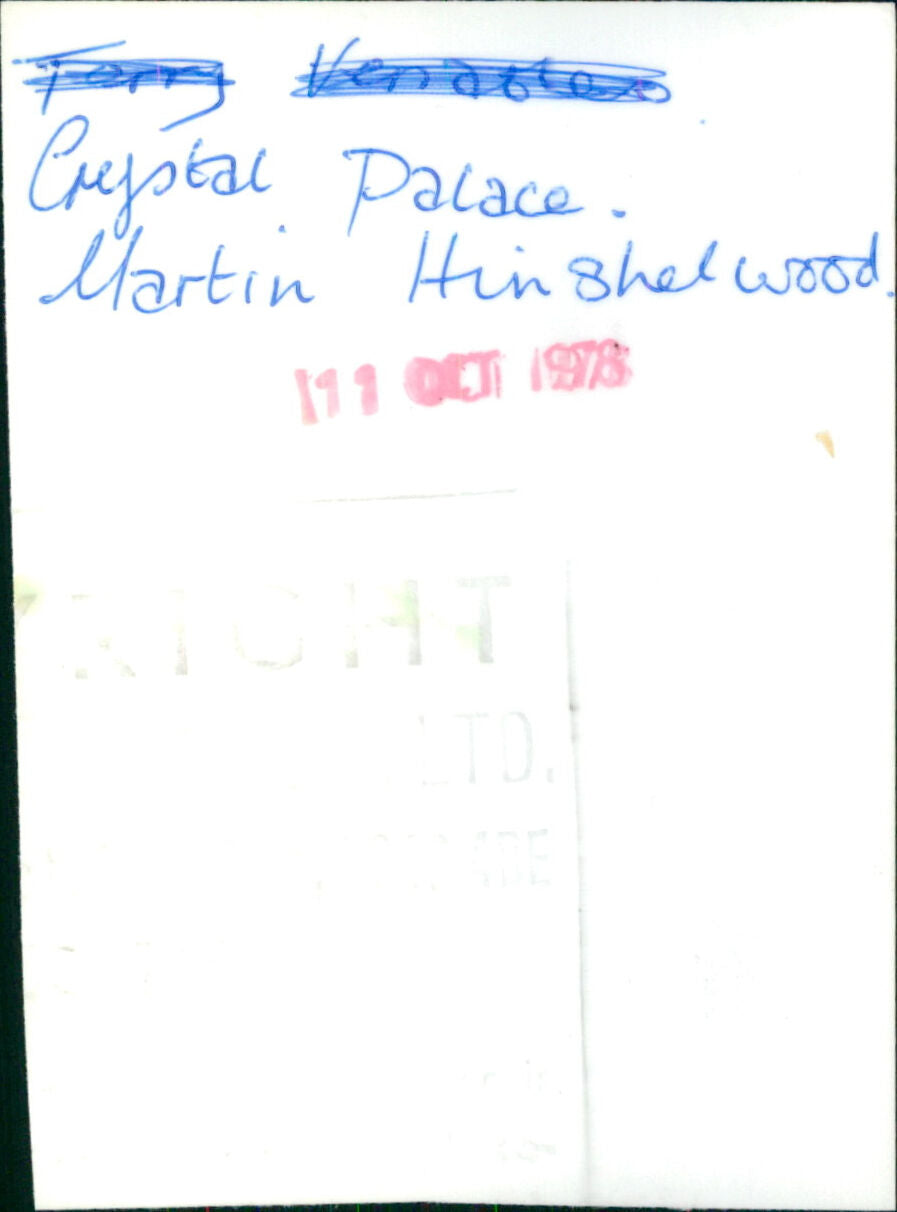 Terry Venables
Crystal Palace.
Martin Hinshelwood.
11 OCT 1978
RIGHT
LTD.